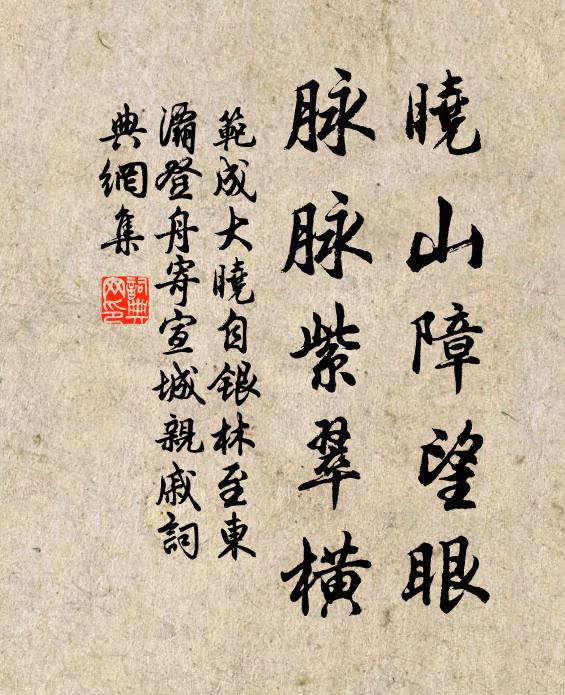 曉山障望眼
脉脉紫翠橫
範成大曉自銀林至東
灞登舟寄宣城親戚詞
典網集
詞典
网印